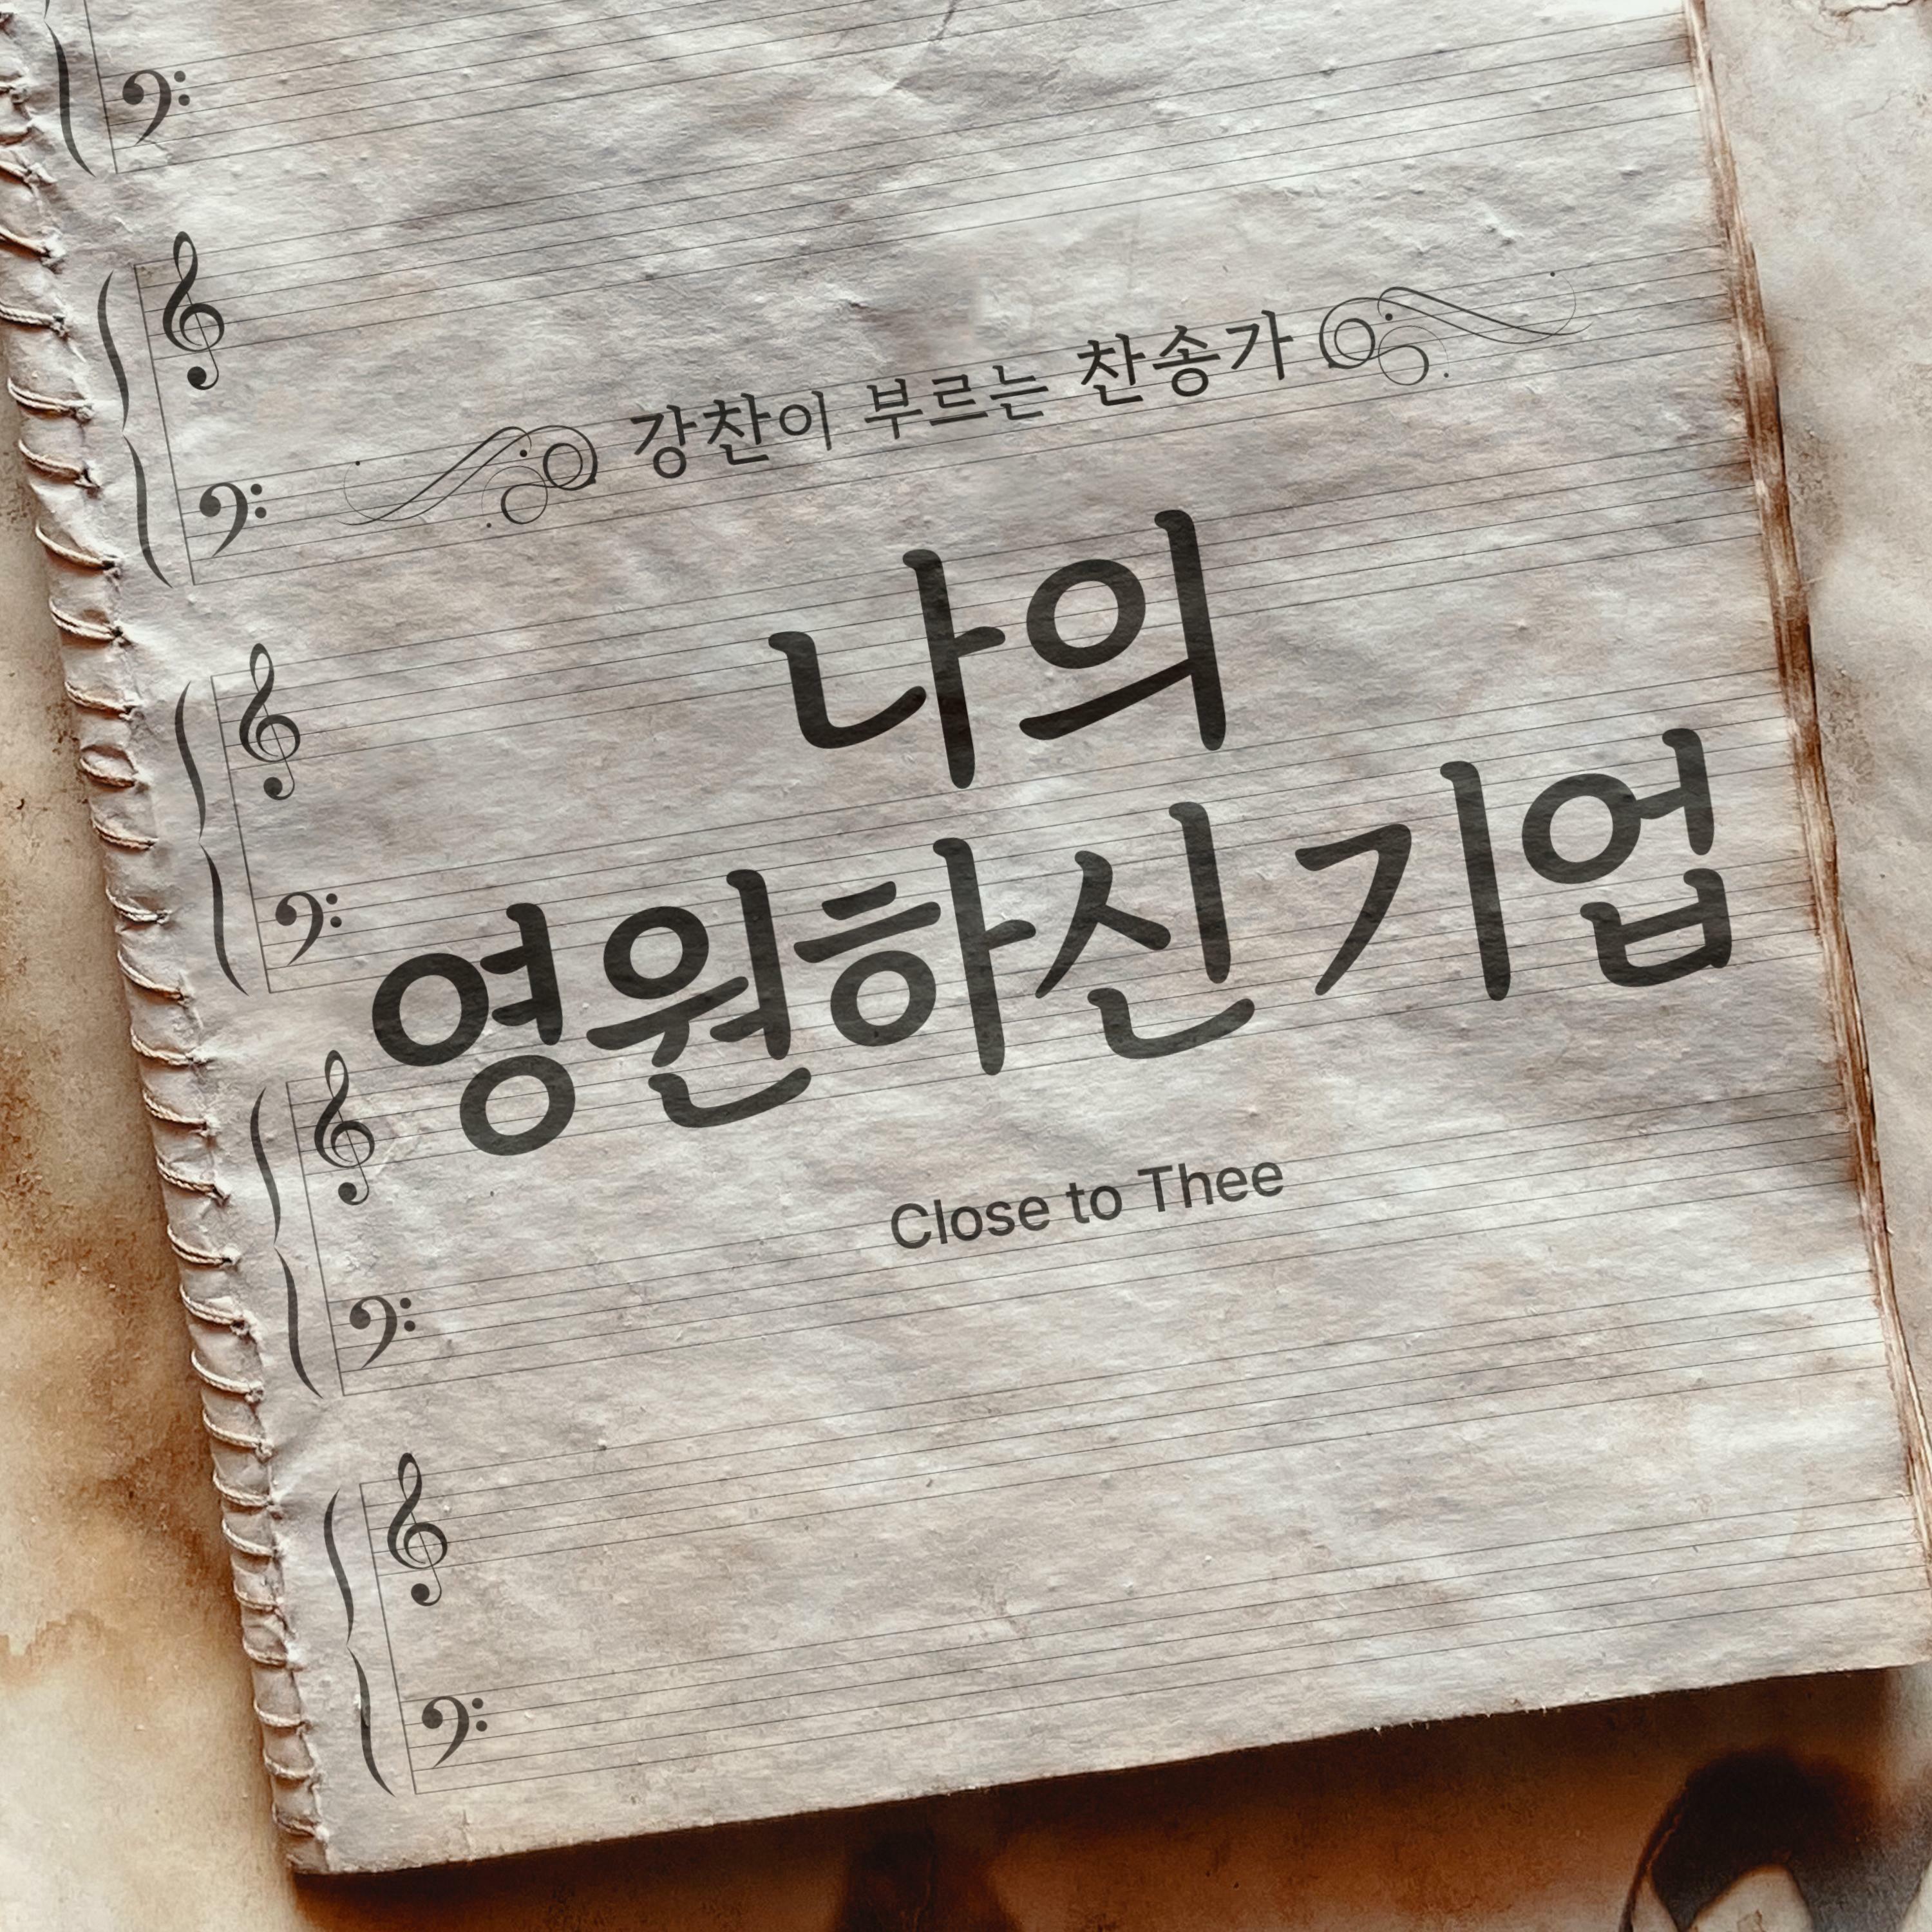 강찬이 부르는 찬송가
나의
영원하신 기업
Close to Thee